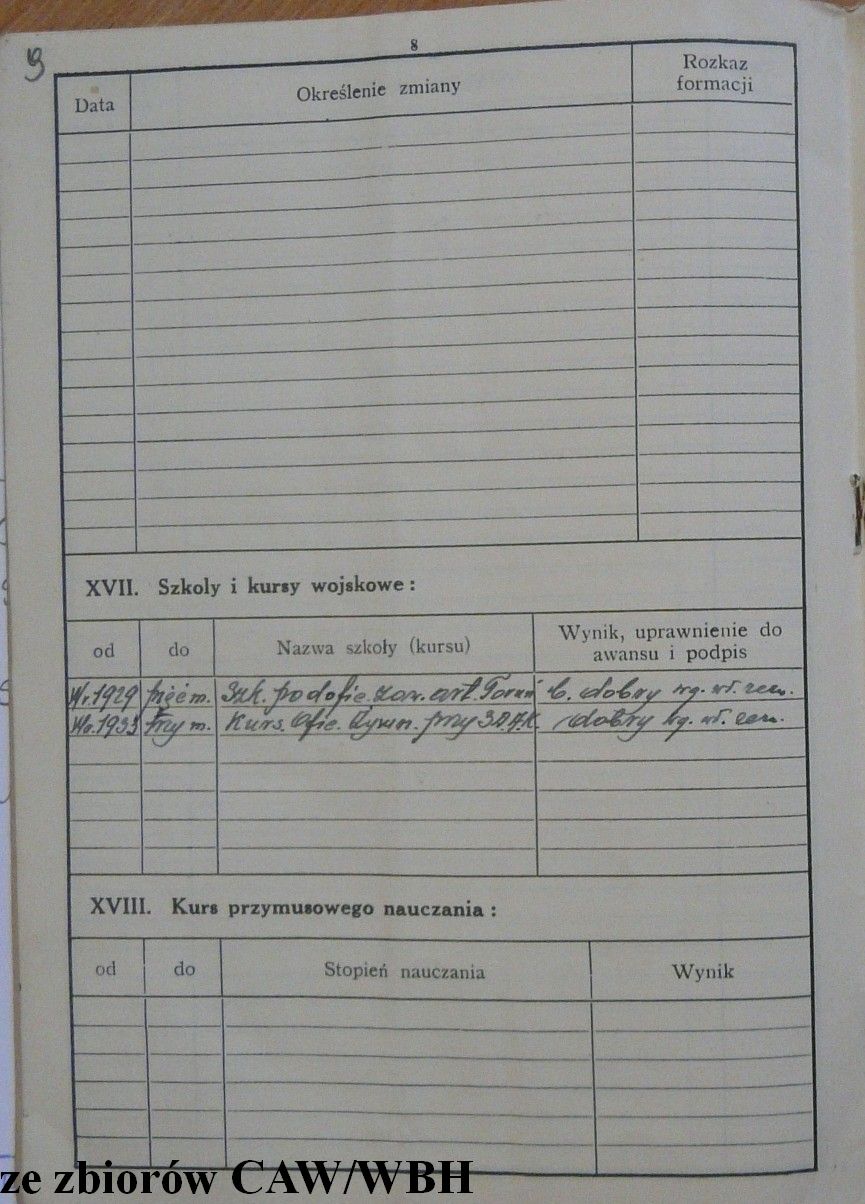 8
Data Określenie zmiany Rozkaz formacji
XVII. Szkoły i kursy wojskowe:
od do Nazwa szkoły (kursu) Wynik, uprawnienie do awansu i podpis
W r. 1929 pięć m. Szk. podofic. zaw. art. Toruń b. dobry wg. wł. zezn.
W r. 1933 trzy m. Kurs. Ofic. Żywn. przy 3 D.A.K. dobry wg. wł. zezn.
XVIII. Kurs przymusowego nauczania:
od do Stopień nauczania Wynik
ze zbiorów CAW/WBH